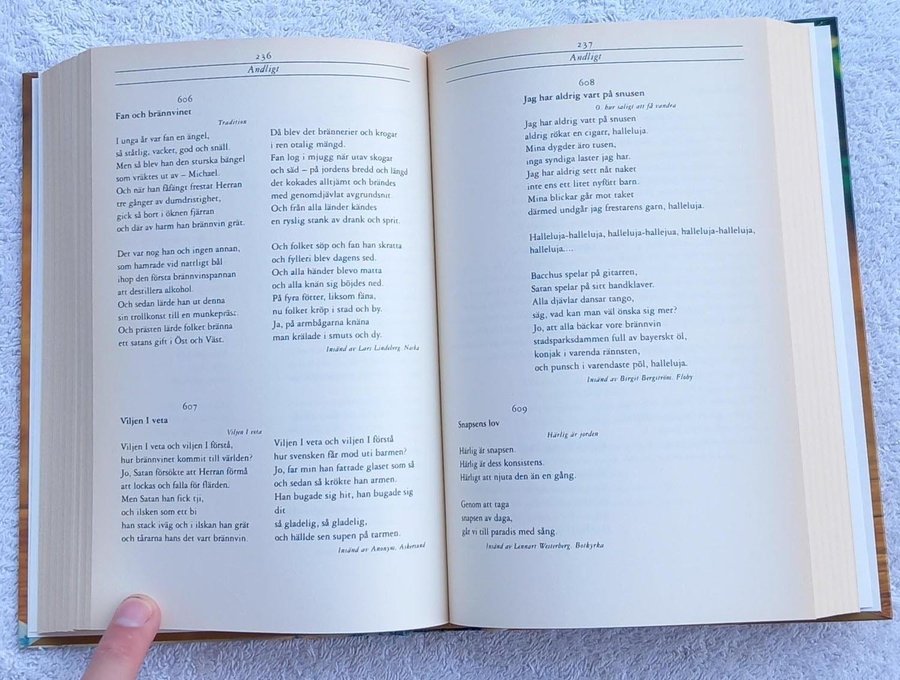 236
Andligt
606
Fan och brännvinet
Tradition
I unga år var fan en ängel,
så ståtlig, vacker, god och snäll.
Men så blev han den sturska bängel
som vräktes ut av – Michael.
Och när han fåfängt frestat Herran
tre gånger av dumdristighet,
gick så bort i öknen fjärran
och där av harm han brännvin gret.
Det var nog han och ingen annan,
som hamrade vid nattligt bål
ihop den första brännvinspannan
att destillera alkohol.
Och sedan lärde han ut denna
sin trollkonst till en munkepräst.
Och prästen lärde folket bränna
ett satans gift i Öst och Väst.
Då blev det brännerier och krogar
i ren otalig mängd.
Fan log i mjugg när utav skogar
och säd – på jordens bredd och längd
det kokades alltjämt och brändes
med genomdjävlat avgrundsnit.
Och från alla länder kändes
en ryslig stank av drank och sprit.
Och folket söp och fan han skratta
och fylleri blev dagens sed.
Och alla händer blevo matta
och alla knän sig böjdes ned.
På fyra fötter, liksom fäna,
nu folket kröp i stad och by.
Ja, på armbågarna knäna
man krälade i smuts och dy.
Insänd av Lars Lindeberg, Nacka
607
Viljen I veta
Viljen I veta
Viljen I veta och viljen I förstå,
hur brännvinet kommit till världen?
Jo, Satan försökte att Herran förmå
att lockas och falla för flärden.
Men Satan han fick tji,
och ilsken som ett bi
han stack iväg och i ilskan han grät
och tårarna hans det vart brännvin.
Viljen I veta och viljen I förstå
hur svensken får mod uti barmen?
Jo, far min han fattade glaset som så
och sedan så krökte han armen.
Han bugade sig hit, han bugade sig
dit
så gladelig, så gladelig,
och hällde sen supen på tarmen.
Insänd av Anonym, Askersund
237
Andligt
608
Jag har aldrig vart på snusen
O, hur saligt att få vandra
Jag har aldrig vart på snusen
aldrig rökat en cigarr, halleluja.
Mina dygder äro tusen,
inga syndiga laster jag har.
Jag har aldrig sett nåt naket
inte ens ett litet nyfött barn.
Mina blickar går mot taket
därmed undgår jag frestarens garn, halleluja.
Halleluja-halleluja, halleluja-hallejua, halleluja-halleluja,
halleluja....
Bacchus spelar på gitarren,
Satan spelar på sitt handklaver.
Alla djävlar dansar tango,
säg, vad kan man väl önska sig mer?
Jo, att alla bäckar vore brännvin
stadsparksdammen full av bayerskt öl,
konjak i varenda rännsten,
och punsch i varendaste pöl, halleluja.
Insänd av Birgit Bergström, Floby
609
Snapsens lov
Härlig är jorden
Härlig är snapsen.
Härlig är dess konsistens.
Härligt att njuta den än en gång.
Genom att taga
snapsen av daga,
går vi till paradis med sång.
Insänd av Lennart Westerberg, Botkyrka